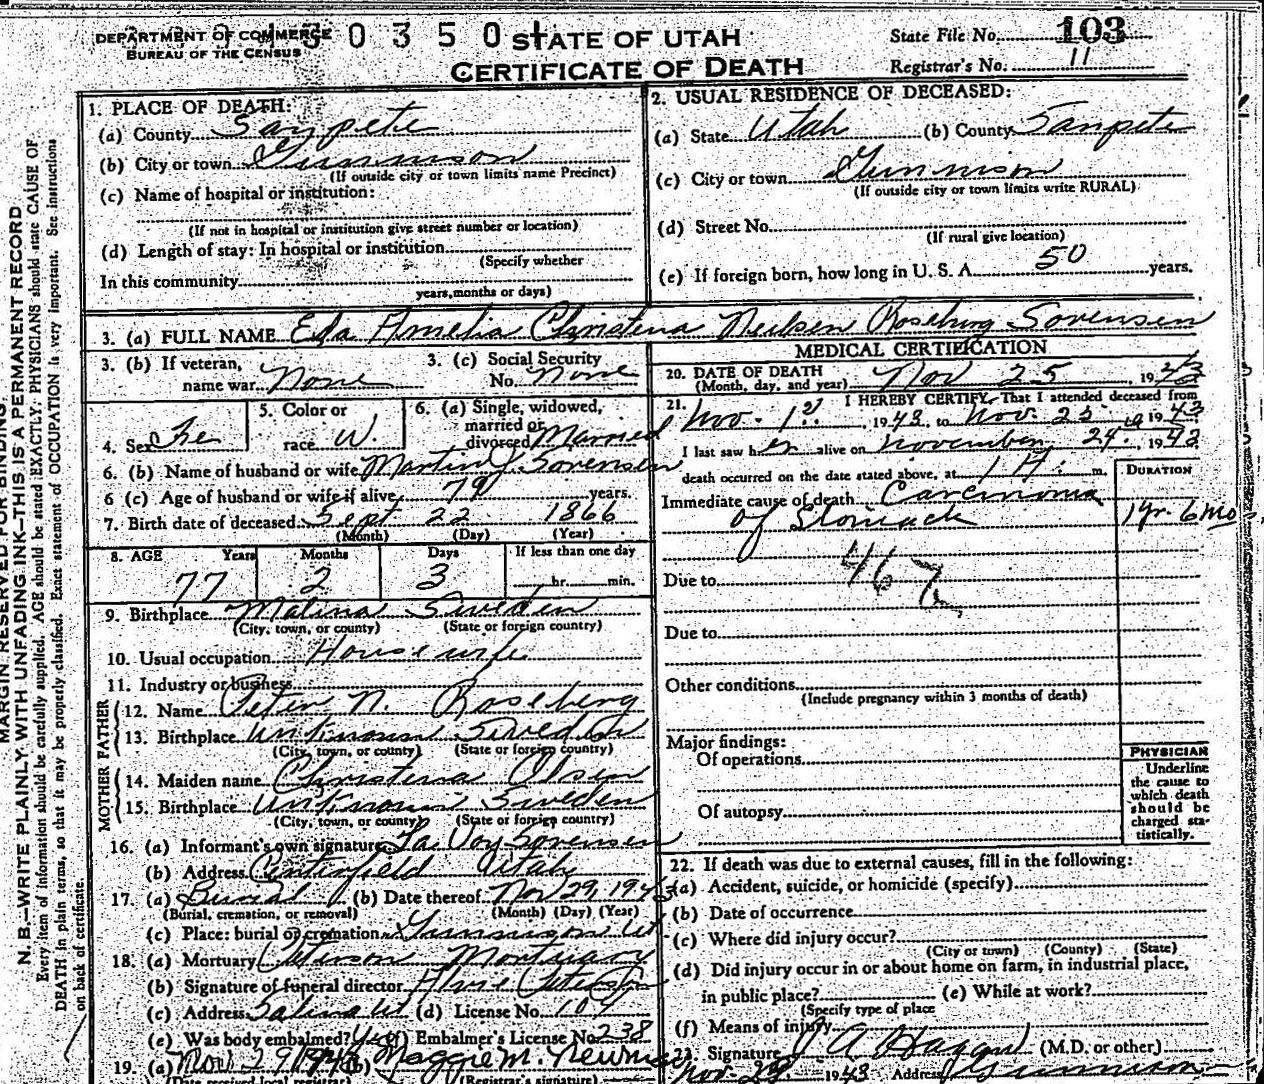 DEPARTMENT OF COMMERCE
BUREAU OF THE CENSUS
0 3 5 0
STATE OF UTAH
CERTIFICATE OF DEATH
State File No. 103
Registrar's No. 11
MARGIN RESERVED FOR BINDING
N. B.—WRITE PLAINLY WITH UNFADING INK—THIS IS A PERMANENT RECORD
Every item of information should be carefully supplied. AGE should be stated EXACTLY. PHYSICIANS should state CAUSE OF
DEATH in plain terms, so that it may be properly classified. Exact statement of OCCUPATION is very important. See instructions
on back of certificate.
1. PLACE OF DEATH:
(a) County Sanpete
(b) City or town Gunnison
(If outside city or town limits name Precinct)
(c) Name of hospital or institution:
(If not in hospital or institution give street number or location)
(d) Length of stay: In hospital or institution
(Specify whether
In this community
years, months or days)
2. USUAL RESIDENCE OF DECEASED:
(a) State Utah (b) County Sanpete
(c) City or town Gunnison
(If outside city or town limits write RURAL)
(d) Street No.
(If rural give location)
(e) If foreign born, how long in U. S. A. 50 years.
3. (a) FULL NAME Eda Amelia Christena Neilsen Roseberg Sorensen
3. (b) If veteran, name war None
3. (c) Social Security No. None
4. Sex Fe
5. Color or race W.
6. (a) Single, widowed, married or divorced Married
6. (b) Name of husband or wife Martin J. Sorensen
6 (c) Age of husband or wife if alive 79 years.
7. Birth date of deceased Sept 22 1866
(Month) (Day) (Year)
8. AGE Years Months Days If less than one day
77 2 3 hr. min.
9. Birthplace Sweden
(City, town, or county) (State or foreign country)
10. Usual occupation Housewife
11. Industry or business
FATHER
12. Name Peter N. Roseberg
13. Birthplace Unknown Sweden
(City, town, or county) (State or foreign country)
MOTHER
14. Maiden name Christena Olsen
15. Birthplace Unknown Sweden
(City, town, or county) (State or foreign country)
16. (a) Informant's own signature La Voy Sorensen
(b) Address Centerfield Utah
17. (a) Burial (b) Date thereof Nov 29, 1943
(Burial, cremation, or removal) (Month) (Day) (Year)
(c) Place: burial or cremation Gunnison Ut
18. (a) Mortuary Peterson Mortuary
(b) Signature of funeral director
(c) Address Salina Ut (d) License No. 107
(e) Was body embalmed? Yes (f) Embalmer's License No. 238
19. (a) Nov 29 1943 (b) Maggie M. Newman
(Date received local registrar) (Registrar's signature)
MEDICAL CERTIFICATION
20. DATE OF DEATH
(Month, day, and year) Nov 25, 1943
21. I HEREBY CERTIFY, That I attended deceased from
Nov. 1st, 1943, to Nov. 25 1943
I last saw her alive on November 24, 1943
death occurred on the date stated above, at m.
DURATION
Immediate cause of death Carcinoma
of Stomach 1 yr. 6 mo.
Due to
Due to
Other conditions
(Include pregnancy within 3 months of death)
Major findings:
Of operations
Of autopsy
PHYSICIAN
Underline
the cause to
which death
should be
charged sta-
tistically.
22. If death was due to external causes, fill in the following:
(a) Accident, suicide, or homicide (specify)
(b) Date of occurrence
(c) Where did injury occur?
(City or town) (County) (State)
(d) Did injury occur in or about home on farm, in industrial place,
in public place? (e) While at work?
(Specify type of place
(f) Means of injury
23. Signature (M.D. or other)
Nov. 1943 Address Gunnison